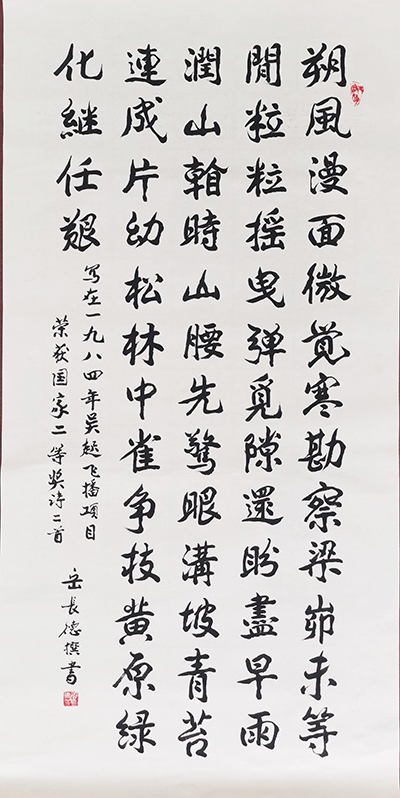 朔風漫面微觉寒勘察梁峁未等
閒粒粒摇曳弹覓隙還盼盡早雨
潤山時山腰先驚眼溝坡青苔
連成片幼松林中雀争枝黄原绿
化继任艱
写在一九八四年吴起飞播项目
荣获国家二等奖诗二首
岳長德撰書